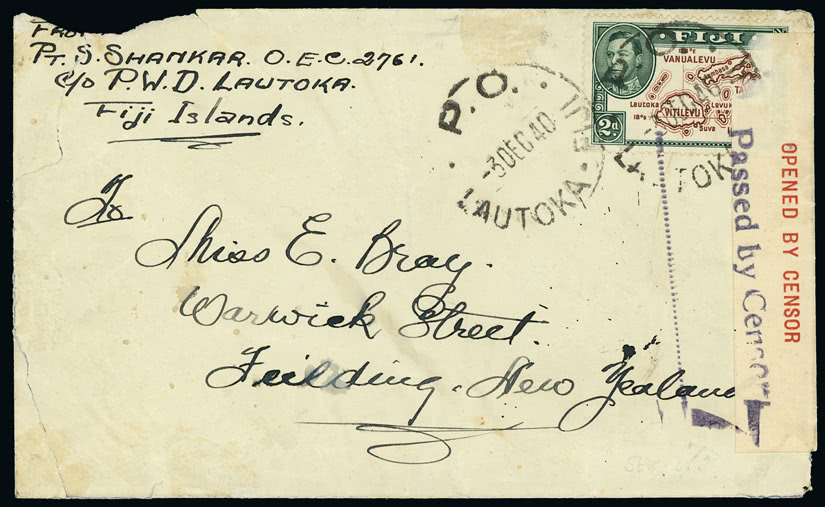 PT. S. SHANKAR. O.E.C. 2761.
C/o P.W.D. LAUTOKA.
Fiji Islands.
FIJI
180°
VANUALEVU
Lautoka
VITILEVU
Suva
2d
P.O.
-3DEC40
LAUTOKA. FIJI
LAUTOKA
OPENED BY CENSOR
Passed by Censor
To
Miss E. Bray.
Warwick Street.
Feilding. New Zealand